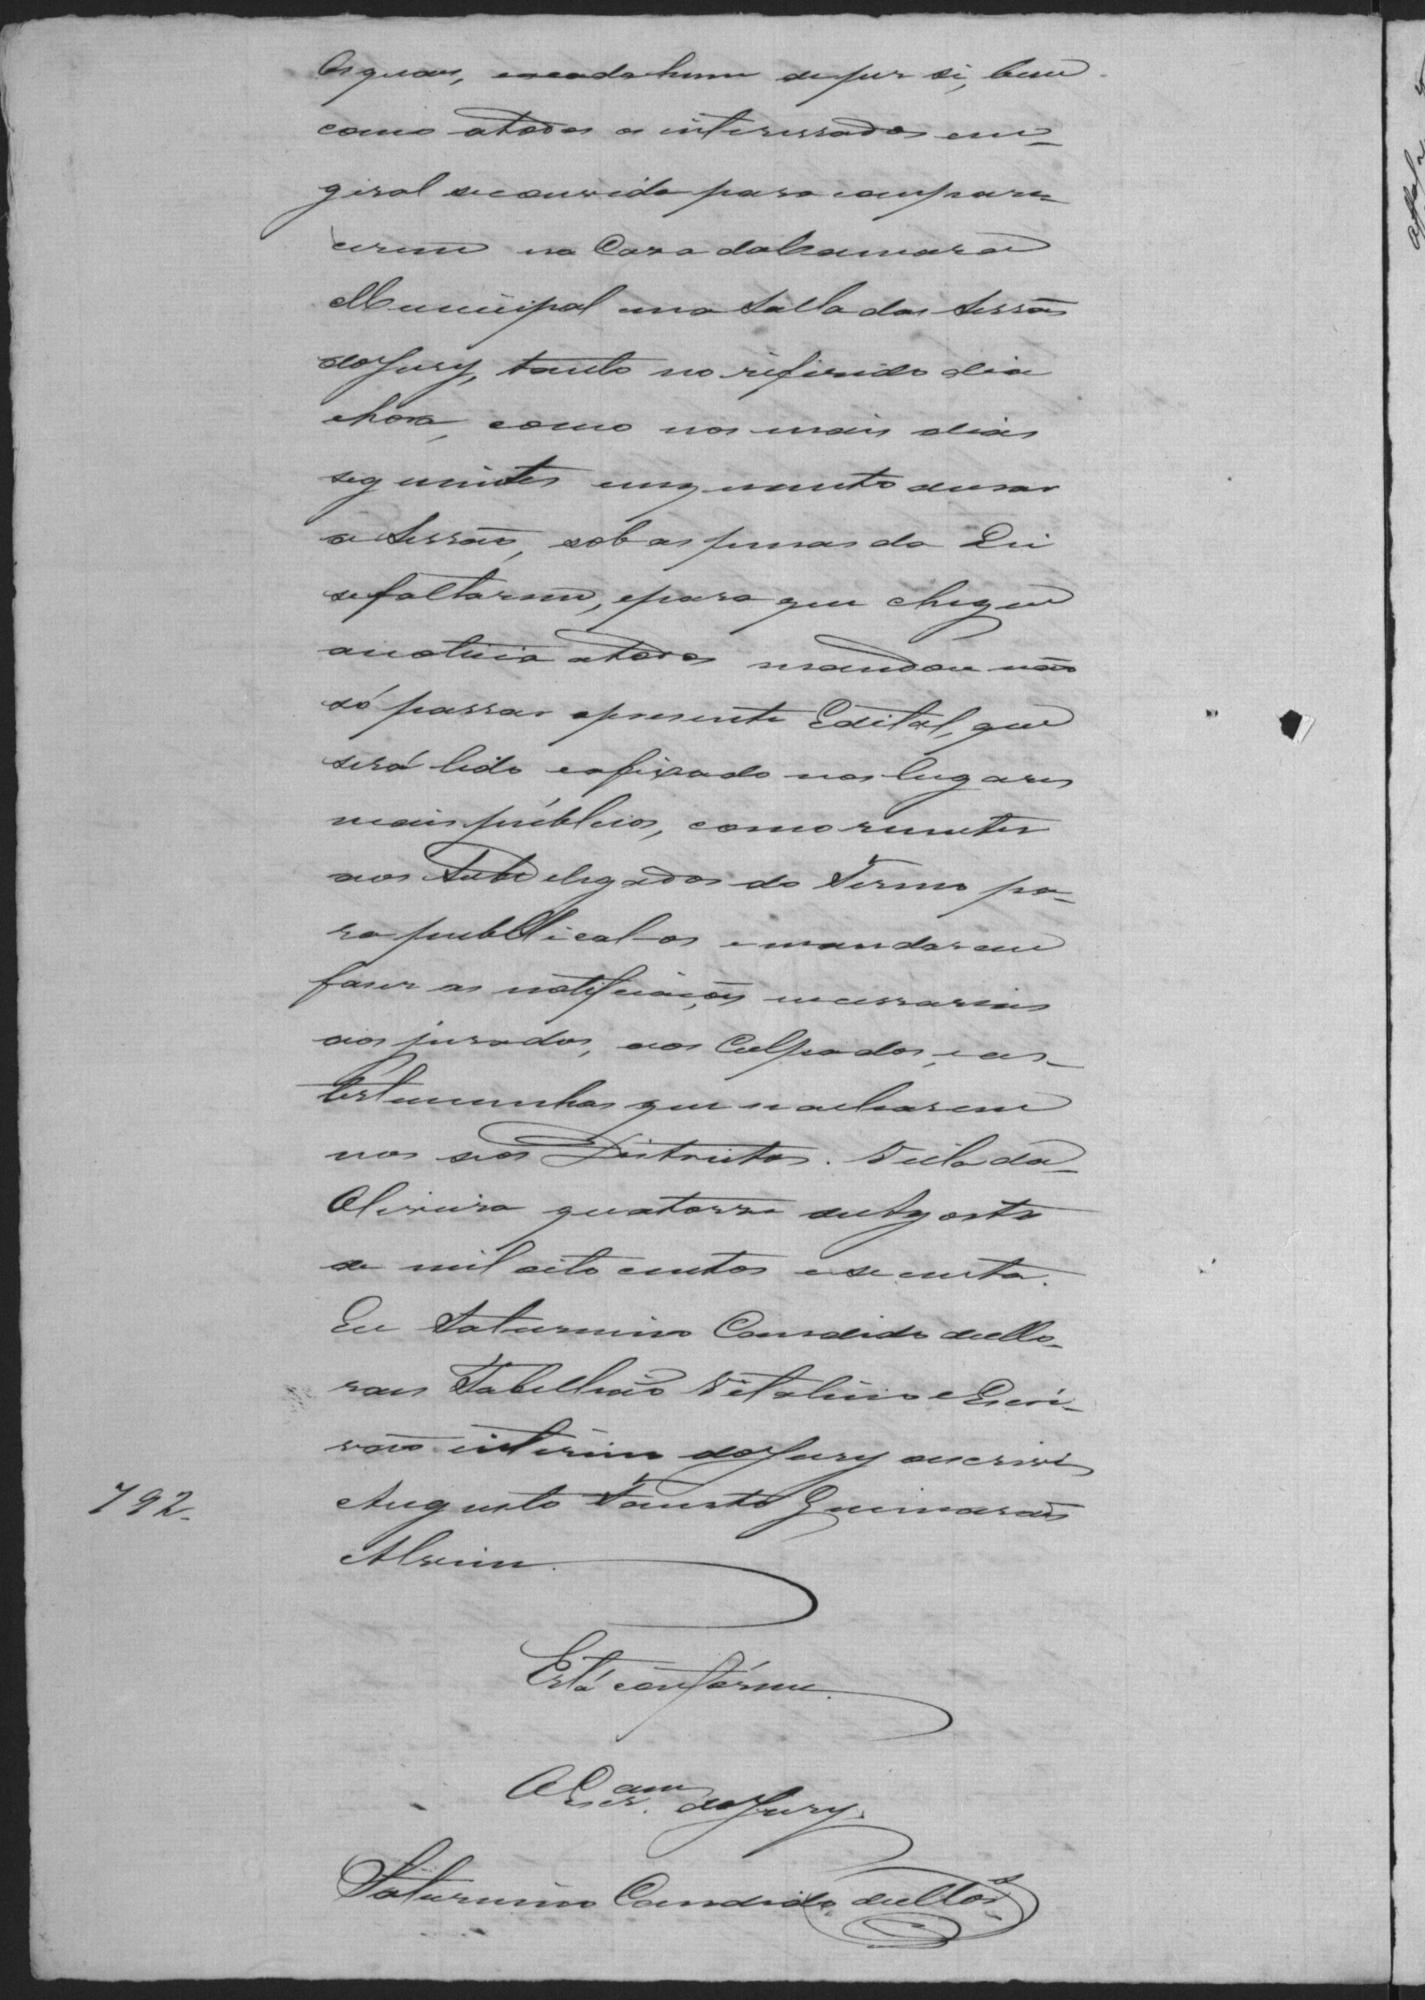 Os quaes, e a cada hum de per si, bem
como a todos os interessados em
geral se convida para compare-
cerem na Casa da Camara
Municipal e na Salla das Sessões
do Jury, tanto no referido dia
e hora, como nos mais dias
seguintes emquanto durar
a Sessão, sob as penas da Lei
se faltarem, e para que chegue
a noticia a todos mandou não
só passar o presente Edital, que
será lido e afixado nos lugares
mais públicos, como remeter
aos Subdelegados do Termo pa-
ra publical-os e mandarem
faser as notificações necessarias
aos jurados, aos Culpados, e as
testemunhas que se acharem
nos seos Districtos. Villa da
Oliveira quatorze de Agosto
de mil oito centos e secenta.
Eu Saturnino Candido de Mo-
raes Tabellião Vitalicio e Escri-
vão interino do Jury o escrivi
Augusto Fausto Guimarães
Alvim.
792.
Está confórme.
O Escr.am do Jury.
Saturnino Candido de Moraes